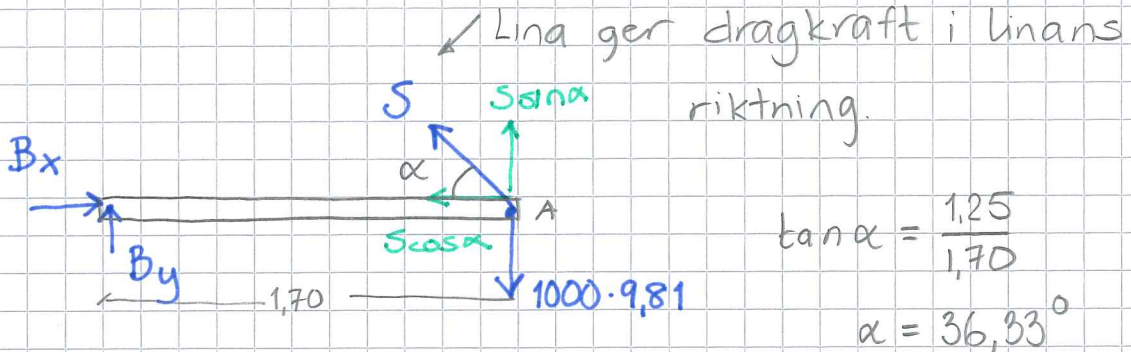 Lina ger dragkraft i linans
riktning.
S
S sinα
Bx
α
A
Scosα
By
1,70
1000·9,81
tanα = 1,25
1,70
α = 36,33°